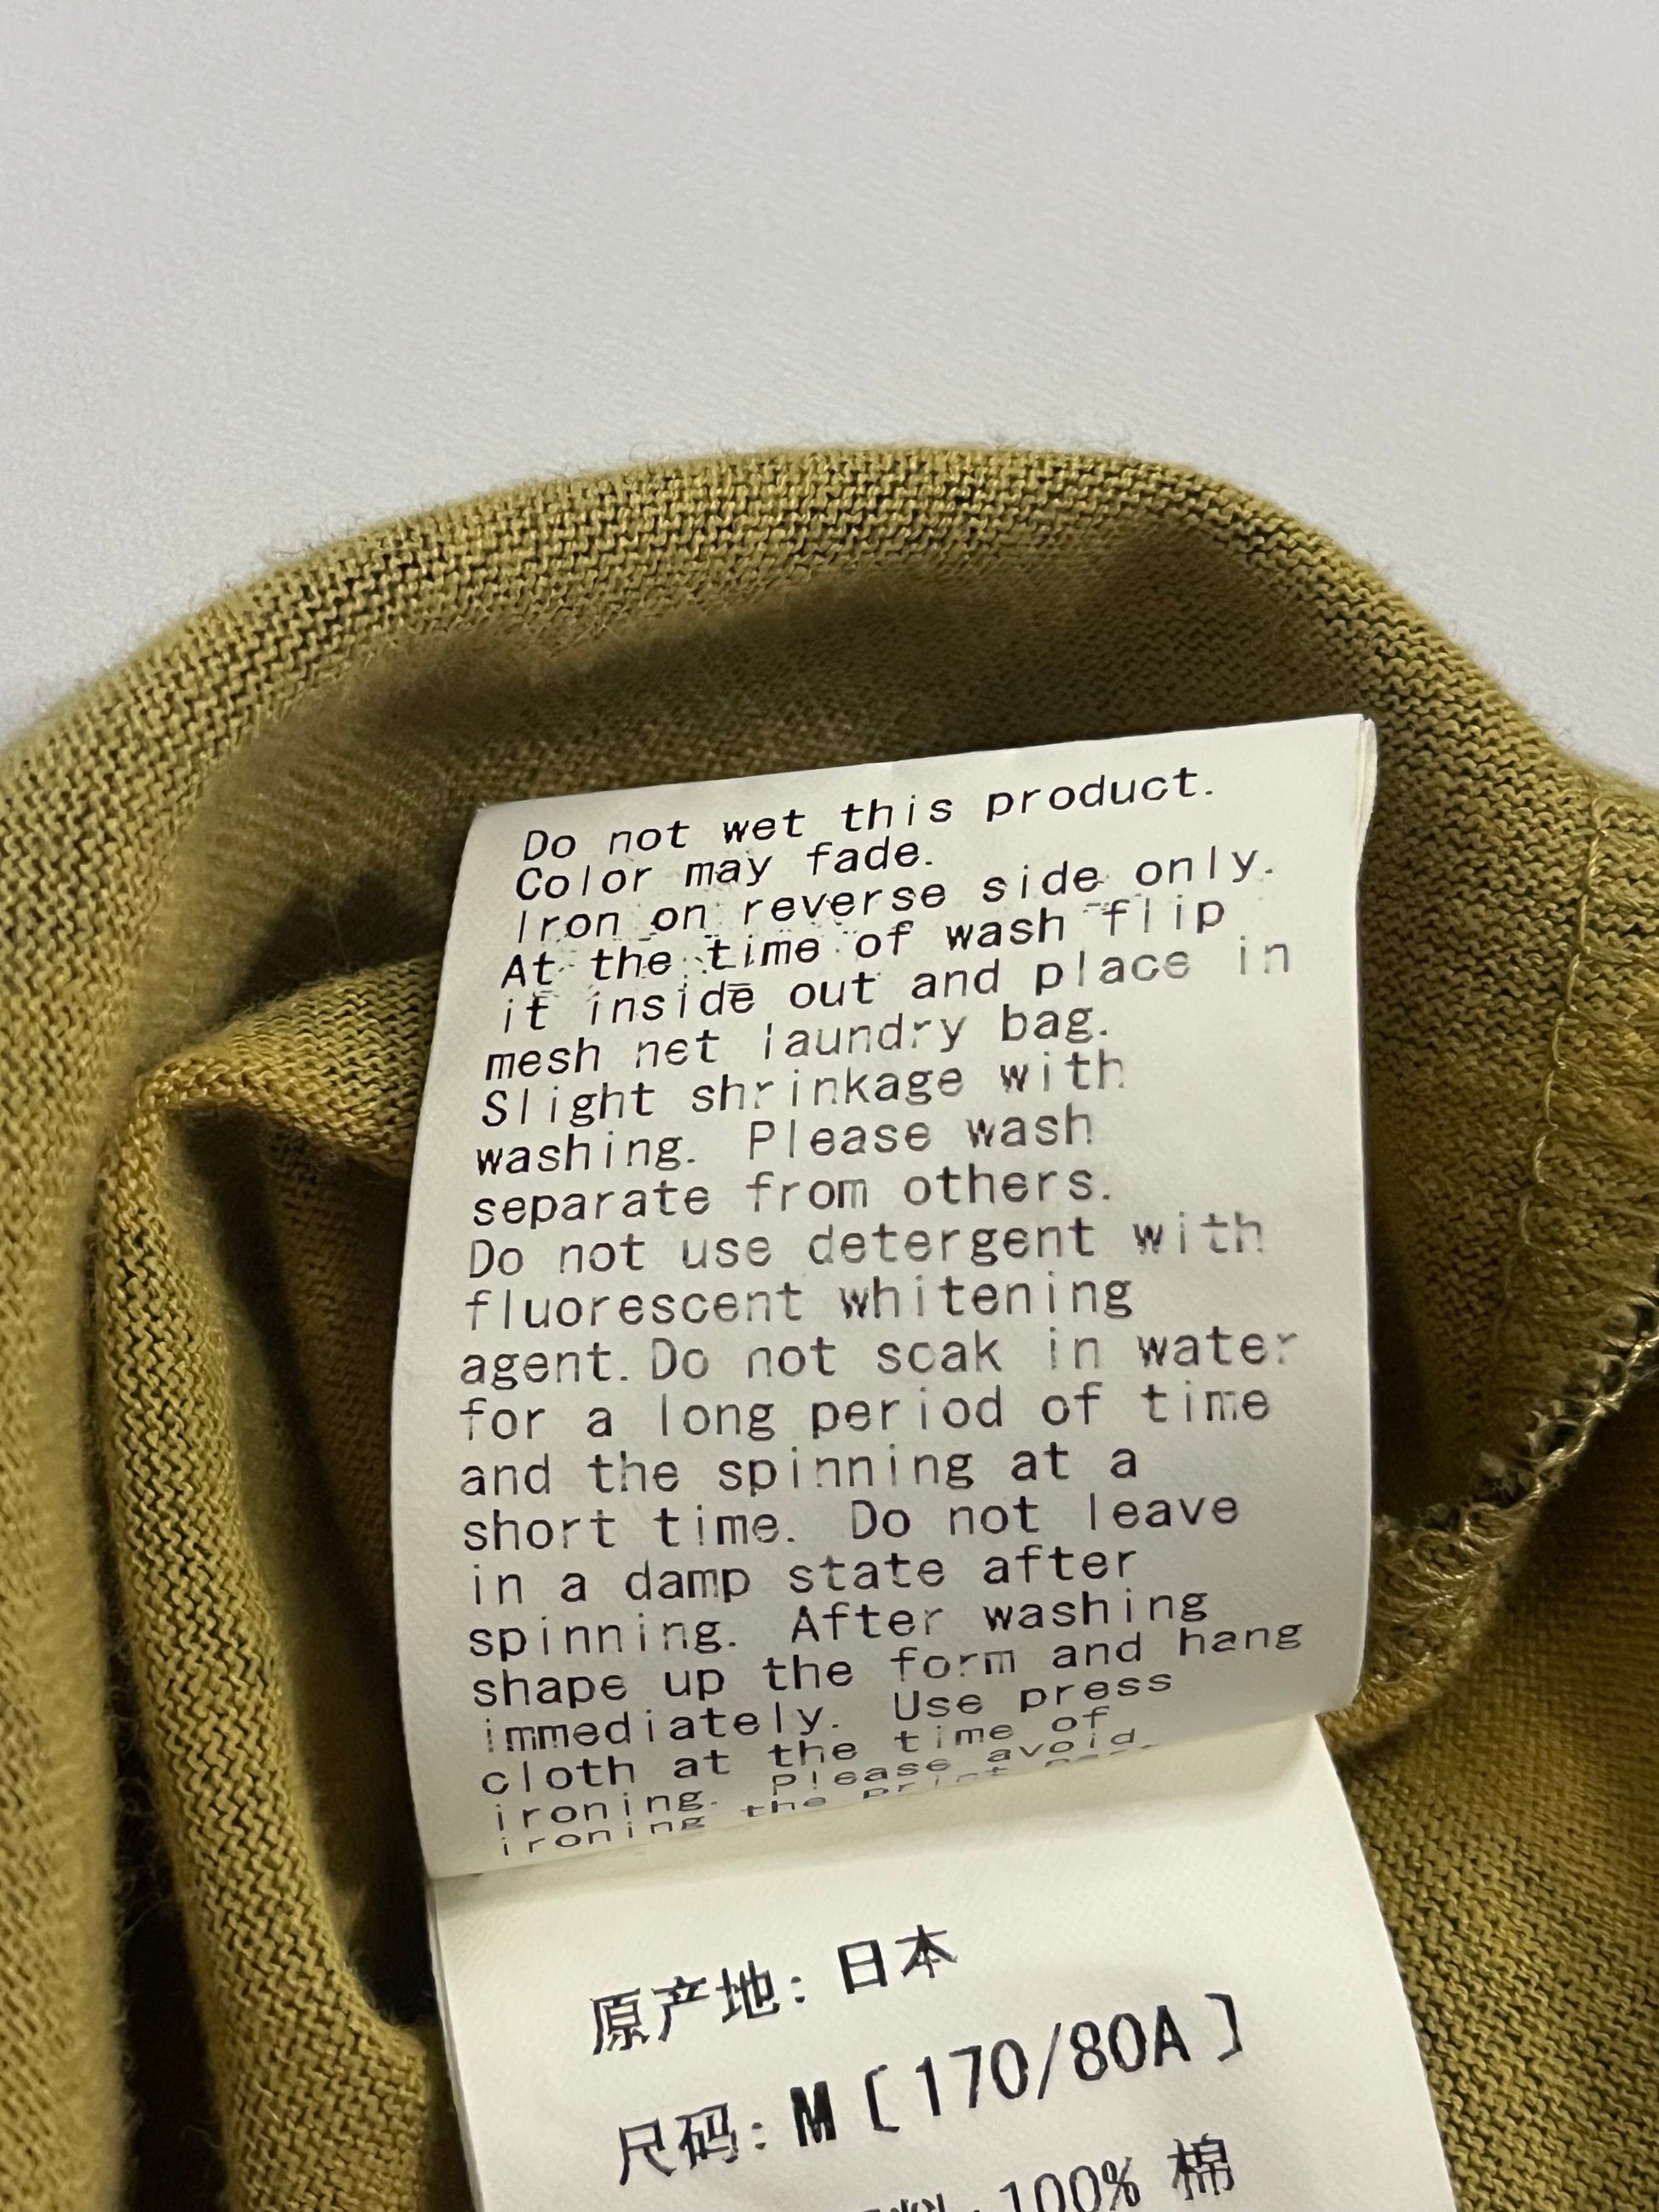 Do not wet this product.
Color may fade.
Iron on reverse side only.
At the time of wash flip
it inside out and place in
mesh net laundry bag.
Slight shrinkage with
washing. Please wash
separate from others.
Do not use detergent with
fluorescent whitening
agent. Do not soak in water
for a long period of time
and the spinning at a
short time. Do not leave
in a damp state after
spinning. After washing
shape up the form and hang
immediately. Use press
cloth at the time of
ironing. Please avoid
ironing the print
原产地: 日本
尺码: M [170/80A]
100% 棉